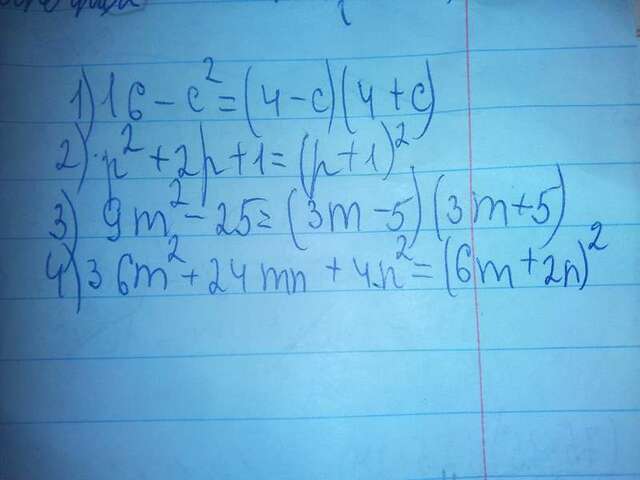 1) 16 - c² = (4 - c)(4 + c)
2) p² + 2p + 1 = (p + 1)²
3) 9m² - 25 = (3m - 5)(3m + 5)
4) 36m² + 24mn + 4n² = (6m + 2n)²